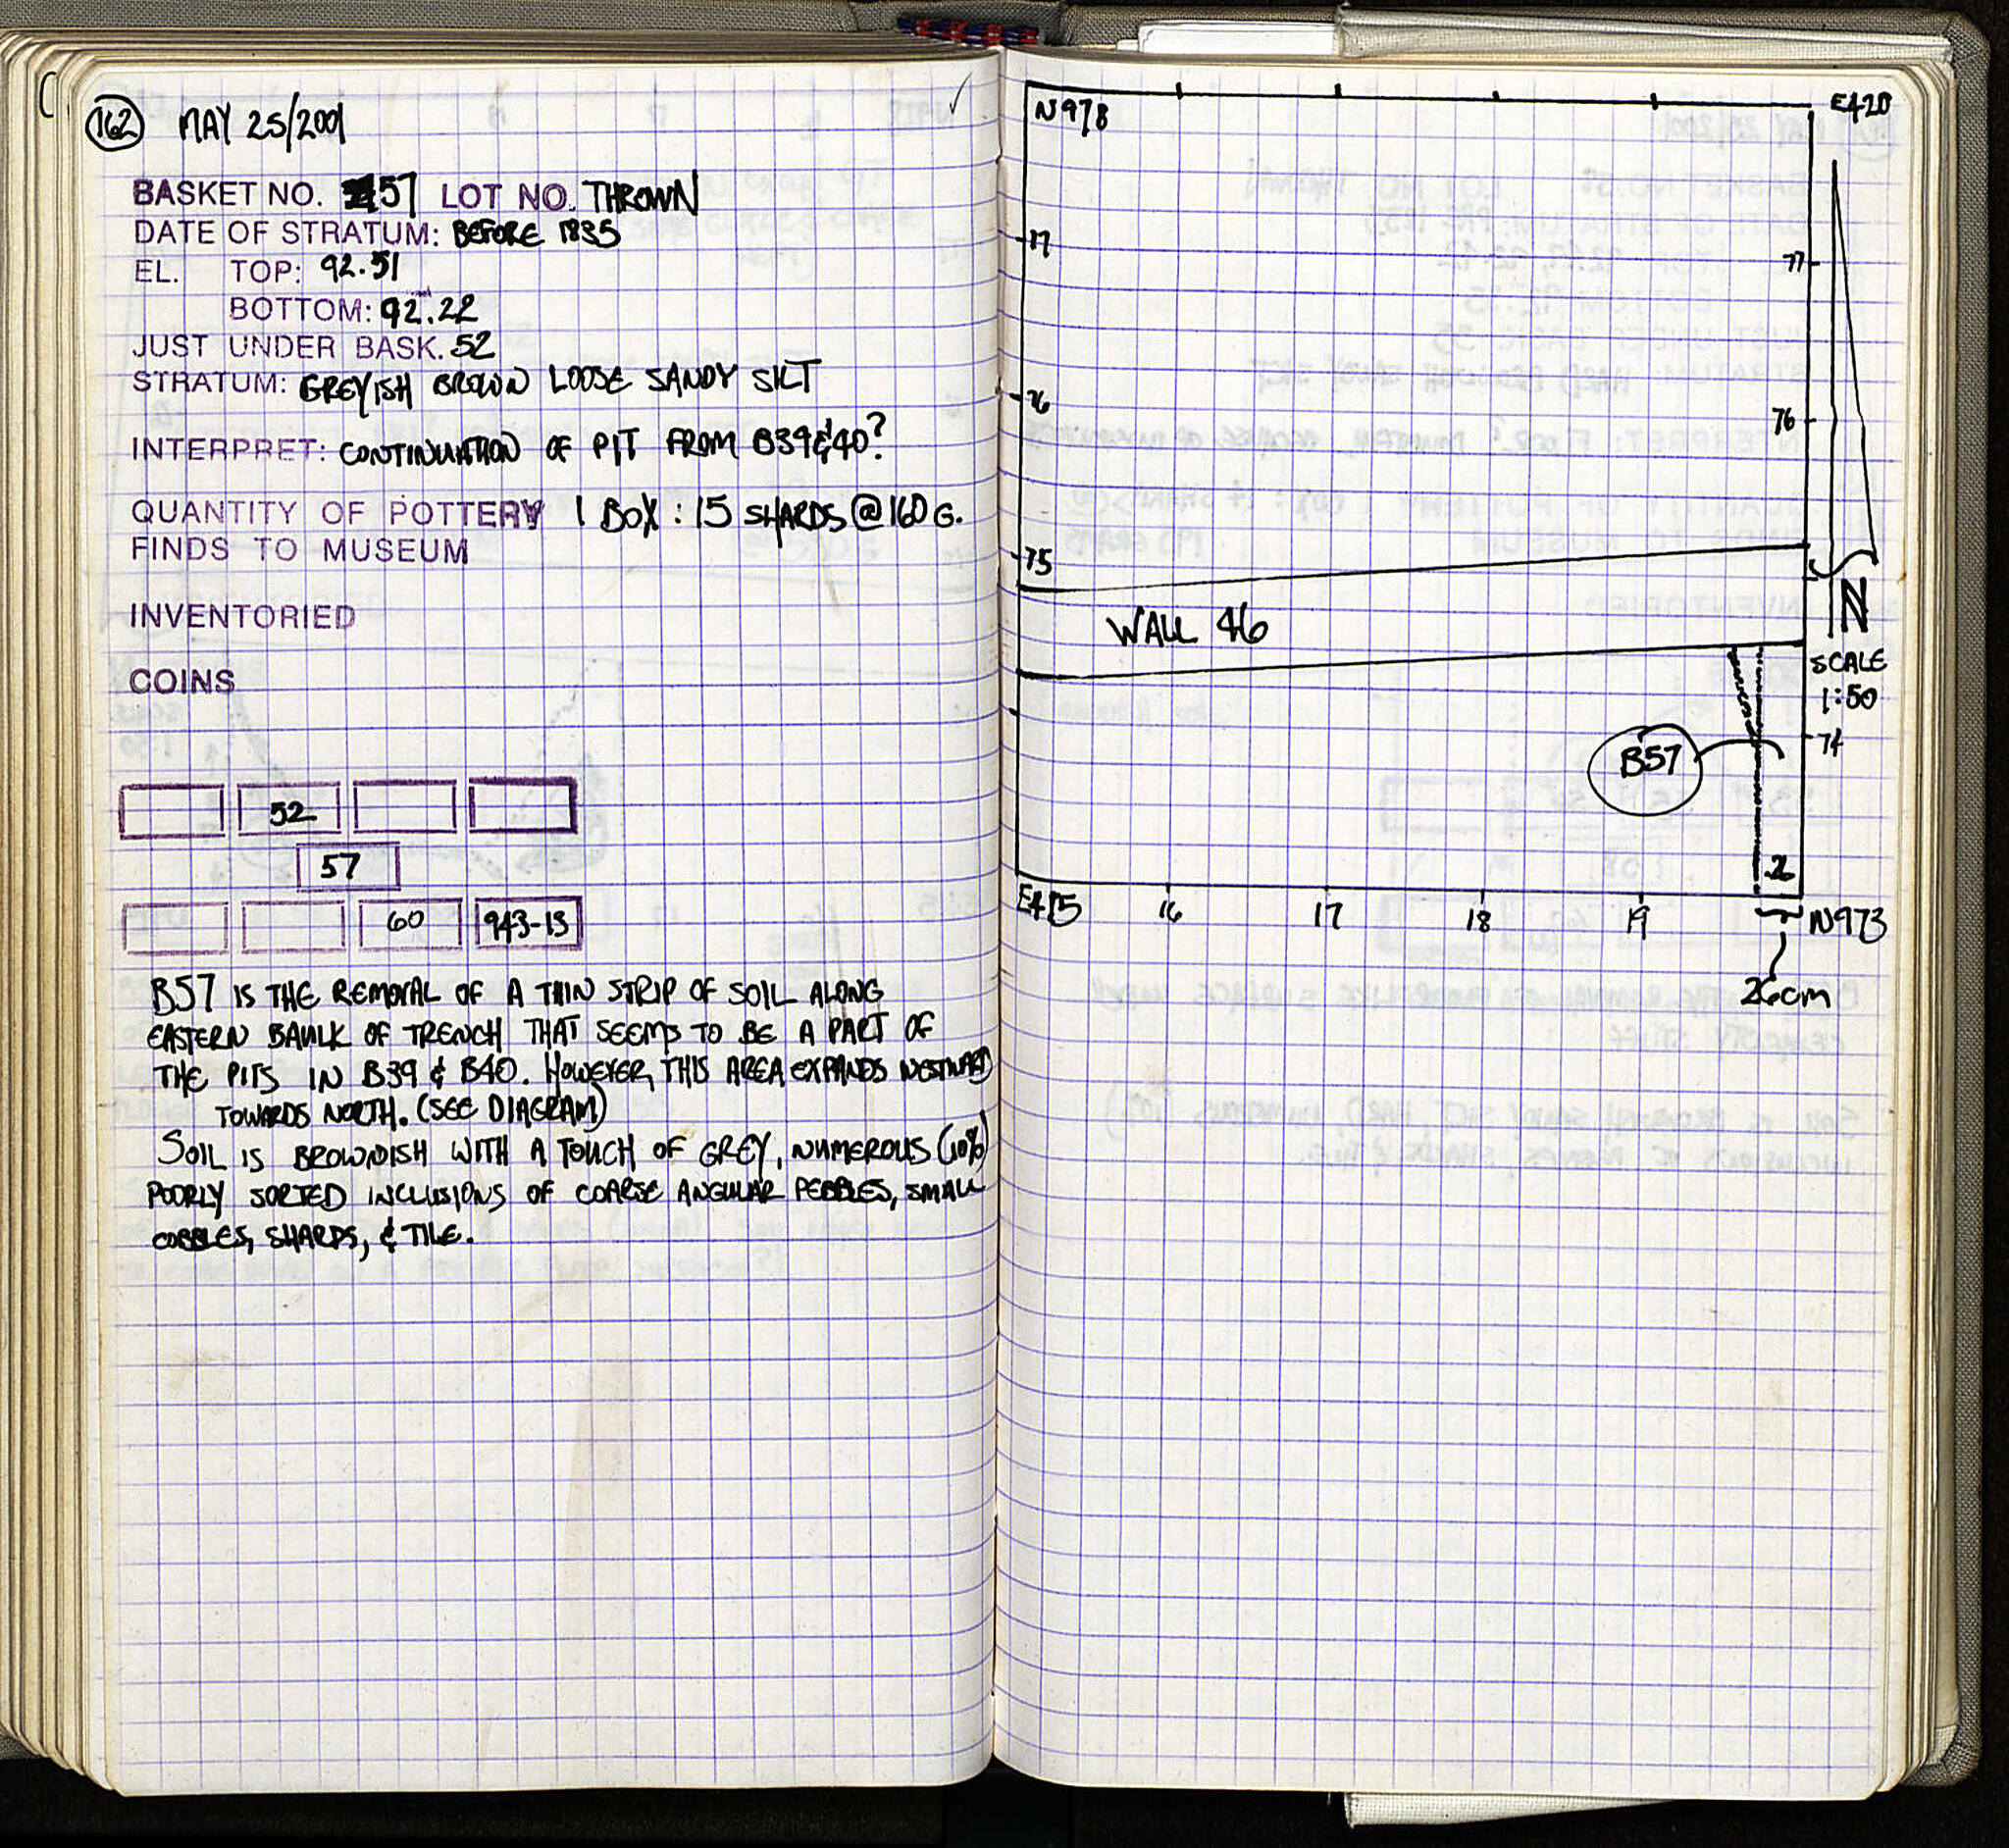 162 MAY 25/2001
BASKET NO. 57 LOT NO. THROWN
DATE OF STRATUM: BEFORE 1835
EL. TOP: 92.51
BOTTOM: 92.22
JUST UNDER BASK. 52
STRATUM: GREYISH BROWN LOOSE SANDY SILT
INTERPRET: CONTINUATION OF PIT FROM B39&40?
QUANTITY OF POTTERY 1 BOX: 15 SHARDS @ 160 G.
FINDS TO MUSEUM
INVENTORIED
COINS
52
57
60 943-13
B57 IS THE REMOVAL OF A THIN STRIP OF SOIL ALONG
EASTERN BAULK OF TRENCH THAT SEEMS TO BE A PART OF
THE PITS IN B39 & B40. HOWEVER, THIS AREA EXPANDS WESTWARD
TOWARDS NORTH. (SEE DIAGRAM)
SOIL IS BROWNISH WITH A TOUCH OF GREY, NUMEROUS (10%)
POORLY SORTED INCLUSIONS OF COARSE ANGULAR PEBBLES, SMALL
COBBLES, SHARDS, & TILE.
N978 E420
77 77
76 76
75
WALL 46
N
SCALE
1:50
74
B57
.2
E415 16 17 18 19 N973
26cm